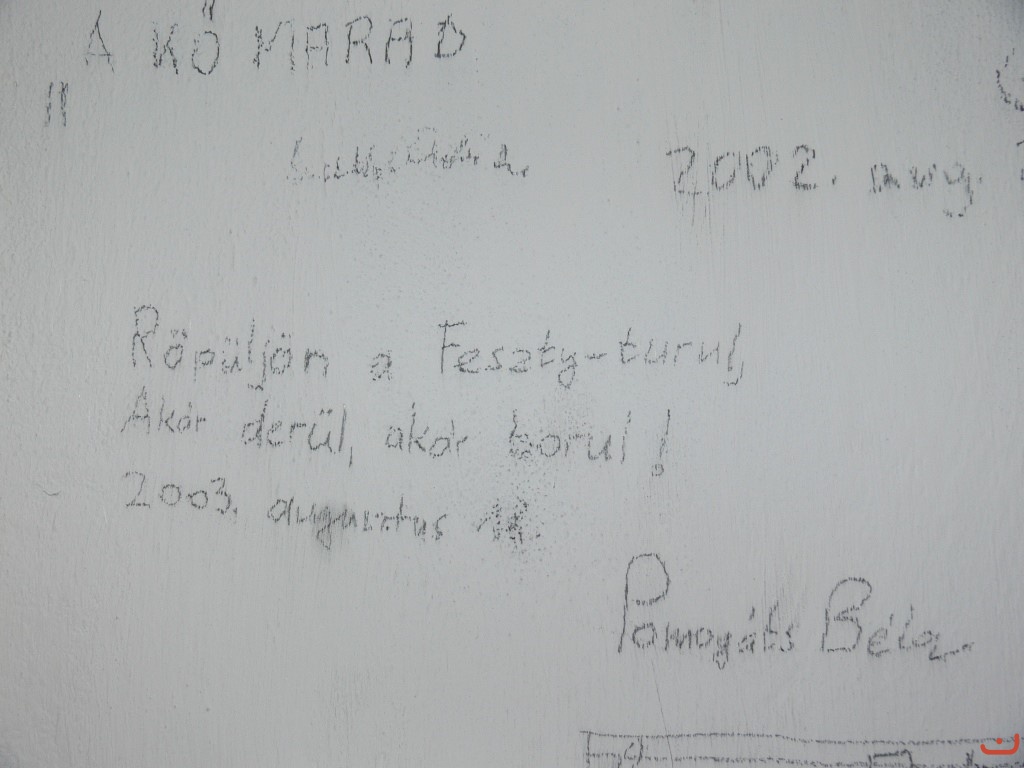 A KŐ MARAD
"
2002. aug.
Röpüljön a Feszty-turul,
Akár derül, akár borul!
2003. augusztus
Pomogáts Béla